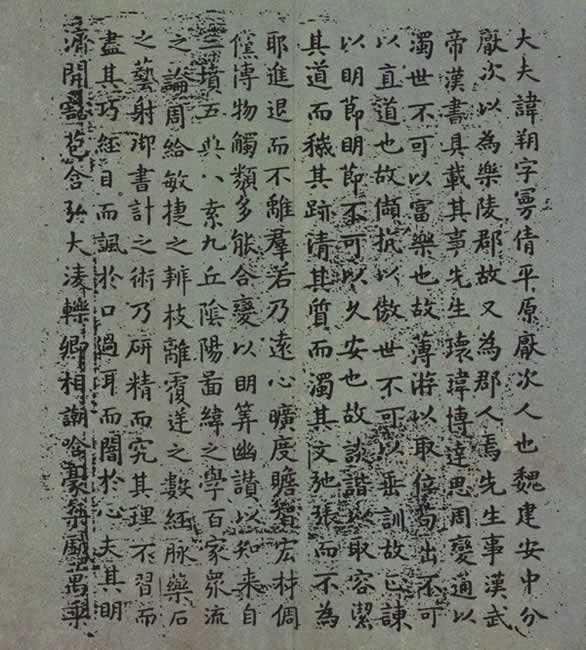 大夫諱朔字曼倩平原厭次人也魏建安中分
厭次以為樂陵郡故又為郡人焉先生事漢武
帝漢書具載其事先生瓌瑋博達思周變通以
濁世不可以富樂也故薄游以取位苟出不可
以直道也故抗以傲世不可以垂訓故正諫
以明節明節不可以久安也故談諧以取容潔
其道而穢其跡清其質而濁其文弛張而不為
耶進退而不離羣若乃遠心曠度贍智宏材倜
儻博物觸類多能合變以明筭幽讚以知來自
三墳五典八索九丘陰陽圖緯之學百家眾流
之論周給敏捷之辨枝離覆逆之數經脉藥石
之藝射御書計之術乃研精而究其理不習而
盡其巧經目而諷於口過耳而闇於心夫其明
濟開豁苞含弘大凌轢卿相謿哈豪桀